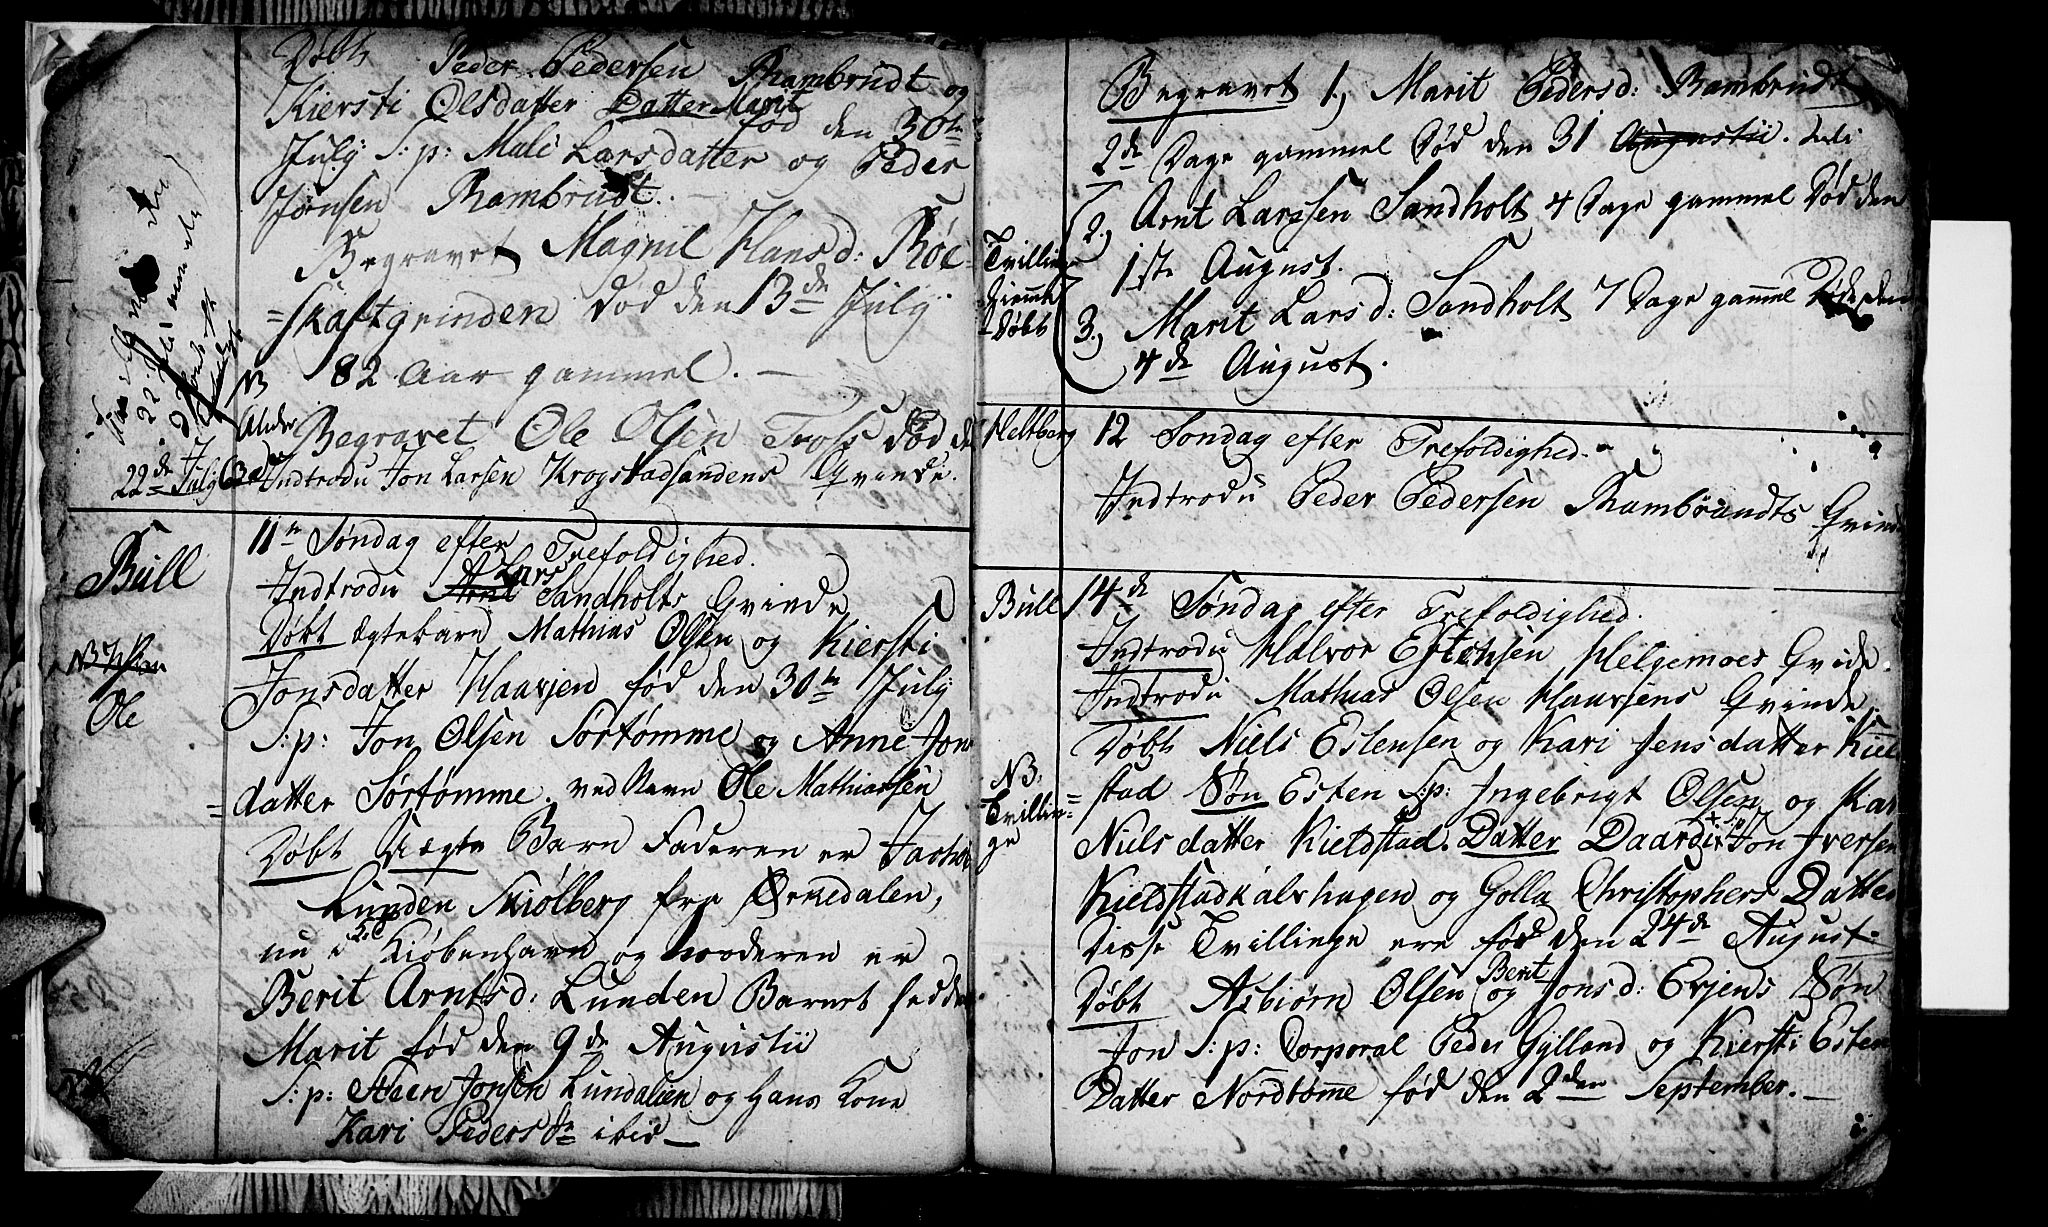 Døbt Peder Pedersen Rambrudt og
Kiersti Olsdatter Datter Marit
fød den 30te
July S:p: Mali Larsdatter og Peder
Jonsen Rambrudt. —
Begravet Magnil Hansd: Røe-
=skaftgrinden Død den 13de July
82 Aar gammel. —
NB
Alder
Begravet Ole Olsen Foss Død d
22de July 63
Indtrodu Jon Larsen Krogstadsandens Qvinde.
Bull
11te Søndag efter Trefoldighed.
Indtrodu Arnt Lars Sandholts Qvinde
Døbt ægtebarn Mathias Olsen og Kiersti
NB
Ole
Jonsdatter Haarjen fød den 30te July
S:p: Jon Olsen Sørtømme og Anne Jons
=datter Sørtømme. ved Navn Ole Mathiassen
Døbt Uægte Barn Faderen er
Lunden Skiølberg fra Ørkedalen,
nu i Kiøbenhavn og Moderen er
Berit Arntsd: Lunden Barnet hedder
Marit fød den 9de Augustii
S:p: Steen Jonsen Lundalien og Hans Kone
Kari Pedersdr ibid —
Begravet 1.) Marit Pedersd: Rambrudt
2de Dage gammel Død den 31 Augustii. Juli
2.) Arnt Larssen Sandholt 4 Dage gammel Død den
1ste August.
Tvillinge
Hiemme
Døbt
3.) Marit Larsd: Sandholt 7 Dage gammel Døde den
4de August.
Heltberg
12 Søndag efter Trefoldighed.
Indtrodu Peder Pedersen Rambrandts Qvinde
Bull
14de Søndag efter Trefoldighed.
Indtrodu Halvor Estensen Helgemoes Qvide.
Indtrodu Mathias Olsen Haarjens Qvinde.
Døbt Niels Estensen og Kari Jensdatter Kiel
NB.
Tvillin=
ge
=stad Søn Esten S:p: Ingebrigt Olsen og Kari
Nielsdatter Kieldstad. Datter Daardi S:p: Jon Iversen
Kieldstadkalvhagen og Golla Christophers Datter
Disse Tvillinge ere fød den 24de August
Døbt Asbiørn Olsen og Berit Jonsd: Evjens Søn
Jon S:p: Corporal Peder Gylland og Kiersti Esten
Datter Nordtømme fød den 2den September. —